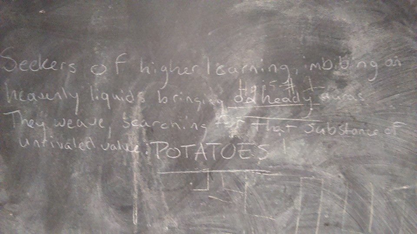 Seekers of higher learning, imbibing on
heavenly liquids brings heady auras
They weave, searching for that substance of
unrivaled value: POTATOES!